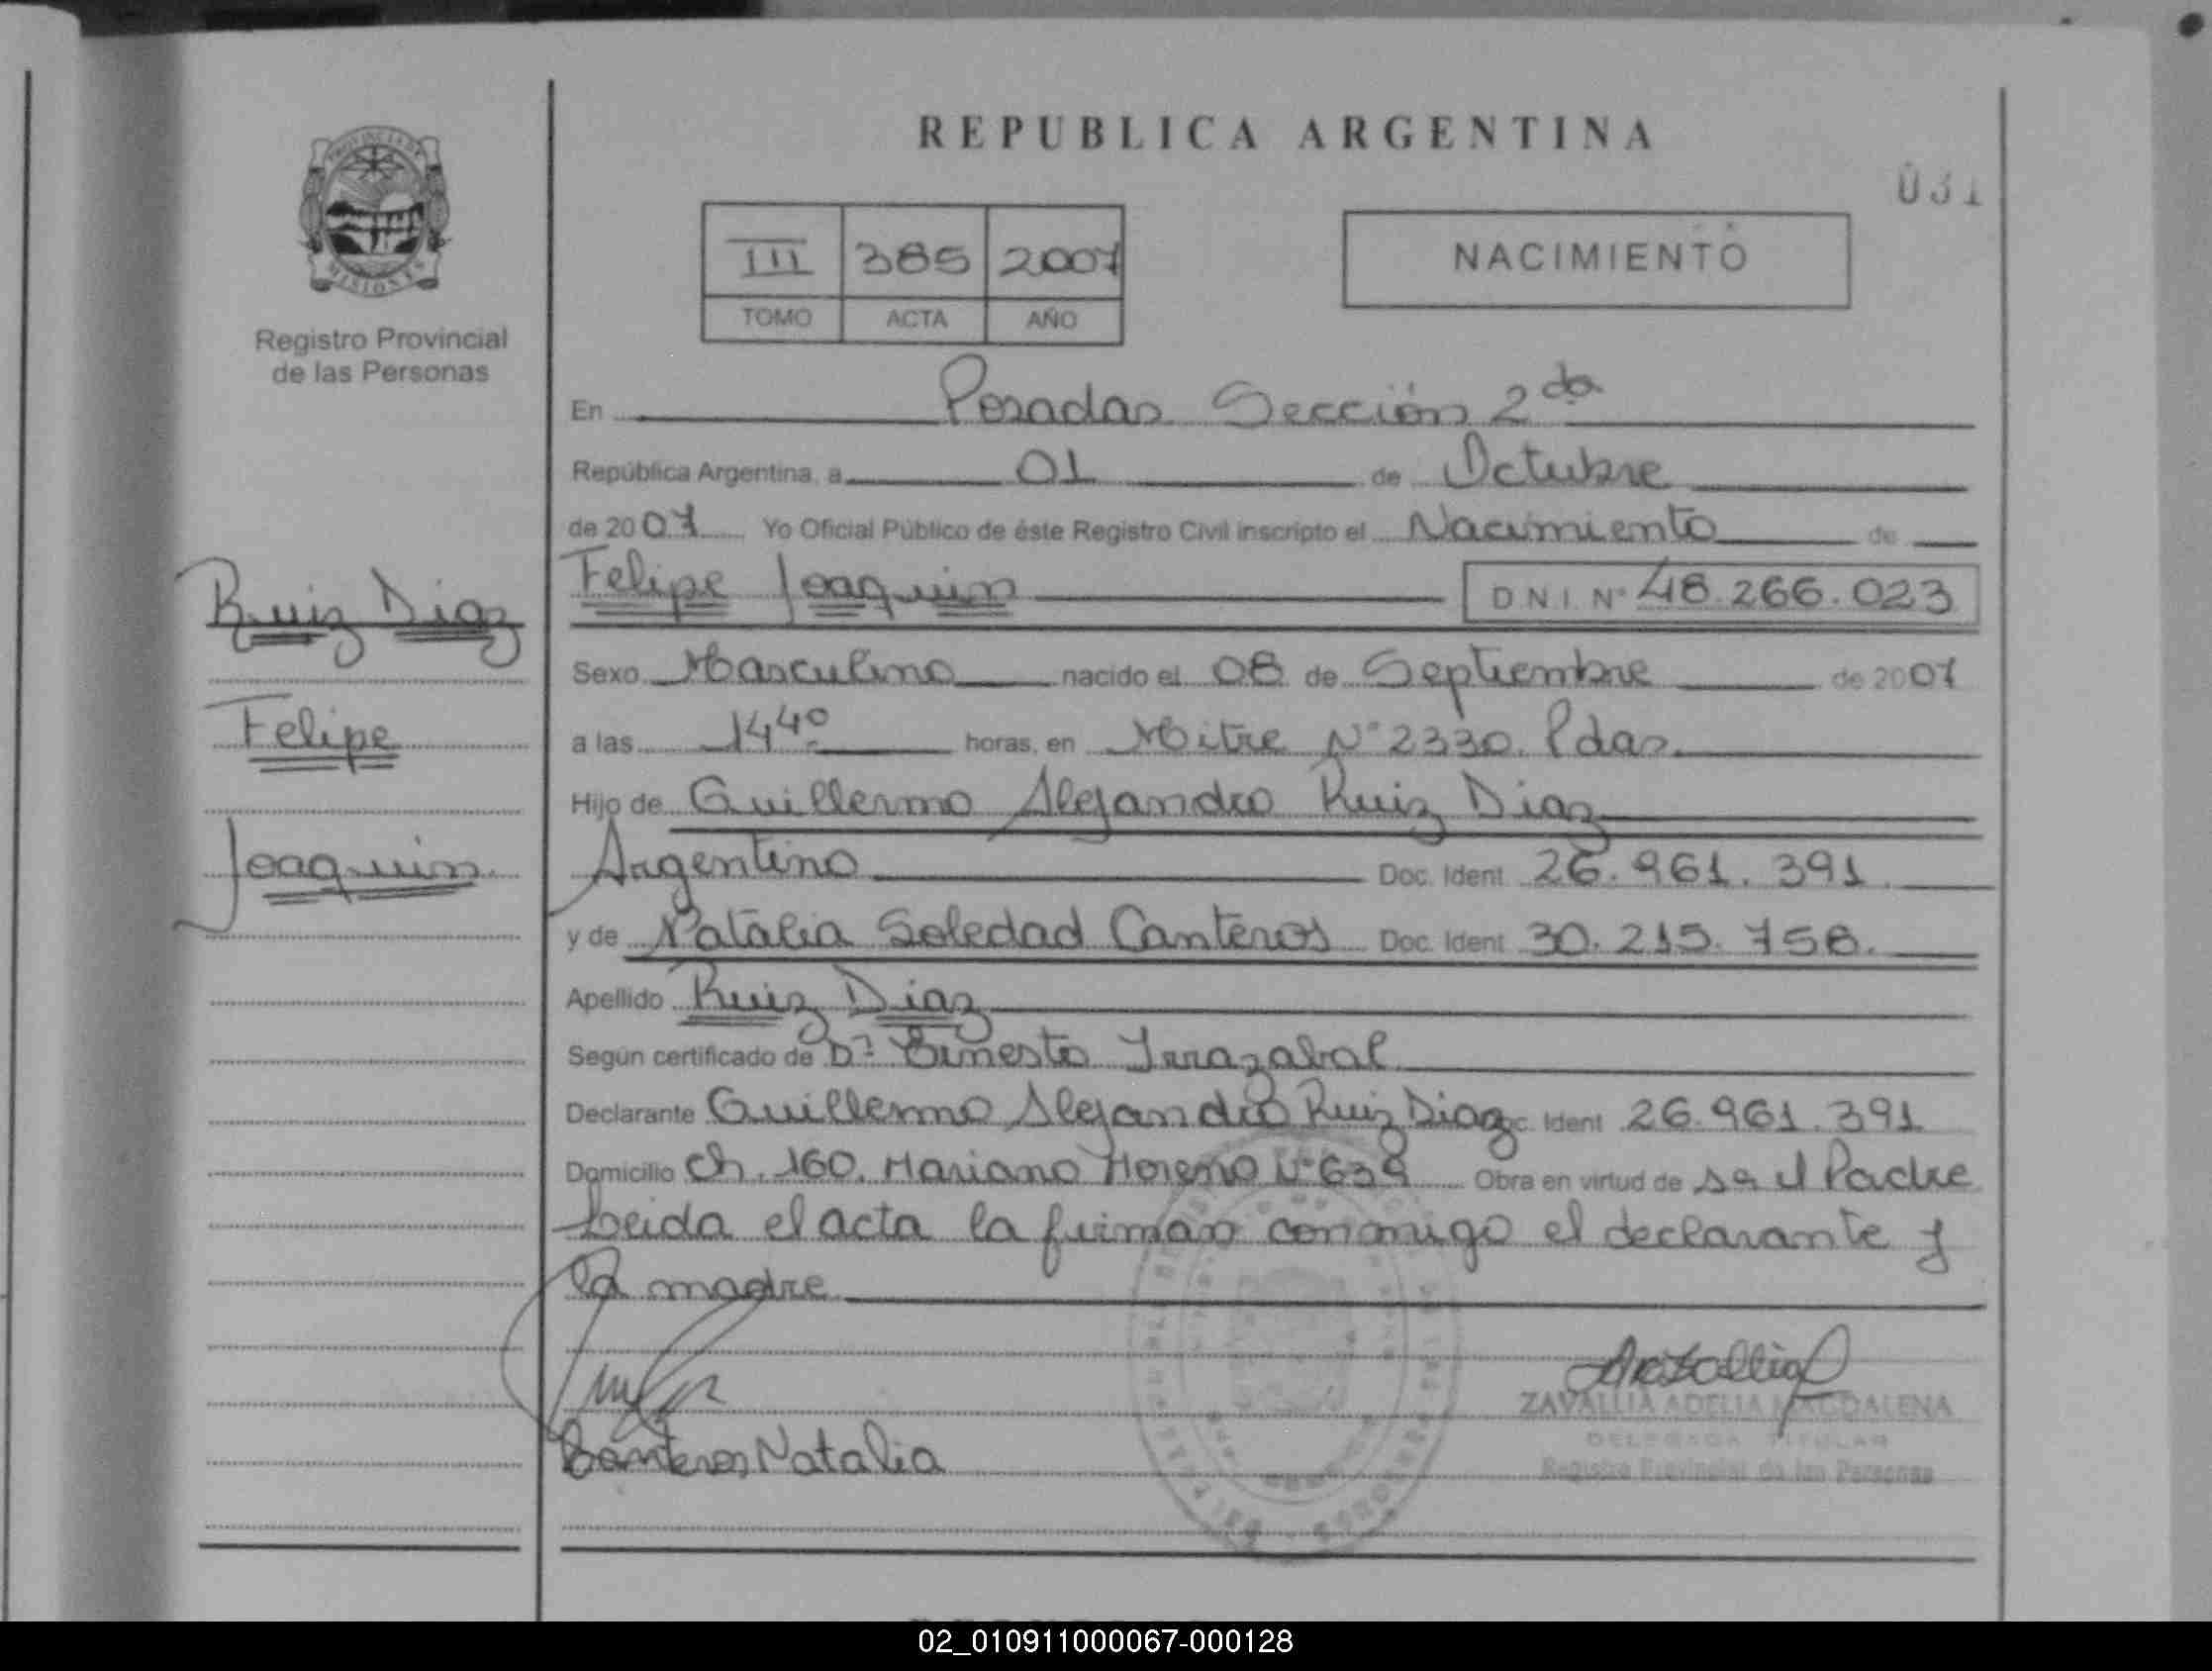 REPUBLICA ARGENTINA
031
PROVINCIA DE
MISIONES
Registro Provincial
de las Personas
III 385 2007
TOMO ACTA AÑO
NACIMIENTO
En Posadas Sección 2da
República Argentina, a 01 de Octubre
de 2007 Yo Oficial Público de éste Registro Civil inscripto el Nacimiento de
Felipe Joaquin D N I Nº 48.266.023
Ruiz Diaz
Felipe
Joaquin.
Sexo Masculino nacido el 08 de Septiembre de 2007
a las 14 40 horas, en Mitre Nº 2330. Pdas.
Hijo de Guillermo Alejandro Ruiz Diaz
Argentino Doc. Ident. 26.961.391.
y de Natalia Soledad Canteros Doc. Ident. 30.215.758.
Apellido Ruiz Diaz
Según certificado de Dr. Ernesto Irrazabal
Declarante Guillermo Alejandro Ruiz Diaz Ident 26.961.391
Domicilio Ch. 160. Mariano Moreno Nº 639 Obra en virtud de ser el Padre
Leida el acta la firman conmigo el declarante y
la madre
Canteros Natalia
ZAVALLIA ADELIA MAGDALENA
DELEGADA TITULAR
Registro Provincial de las Personas
02_010911000067-000128